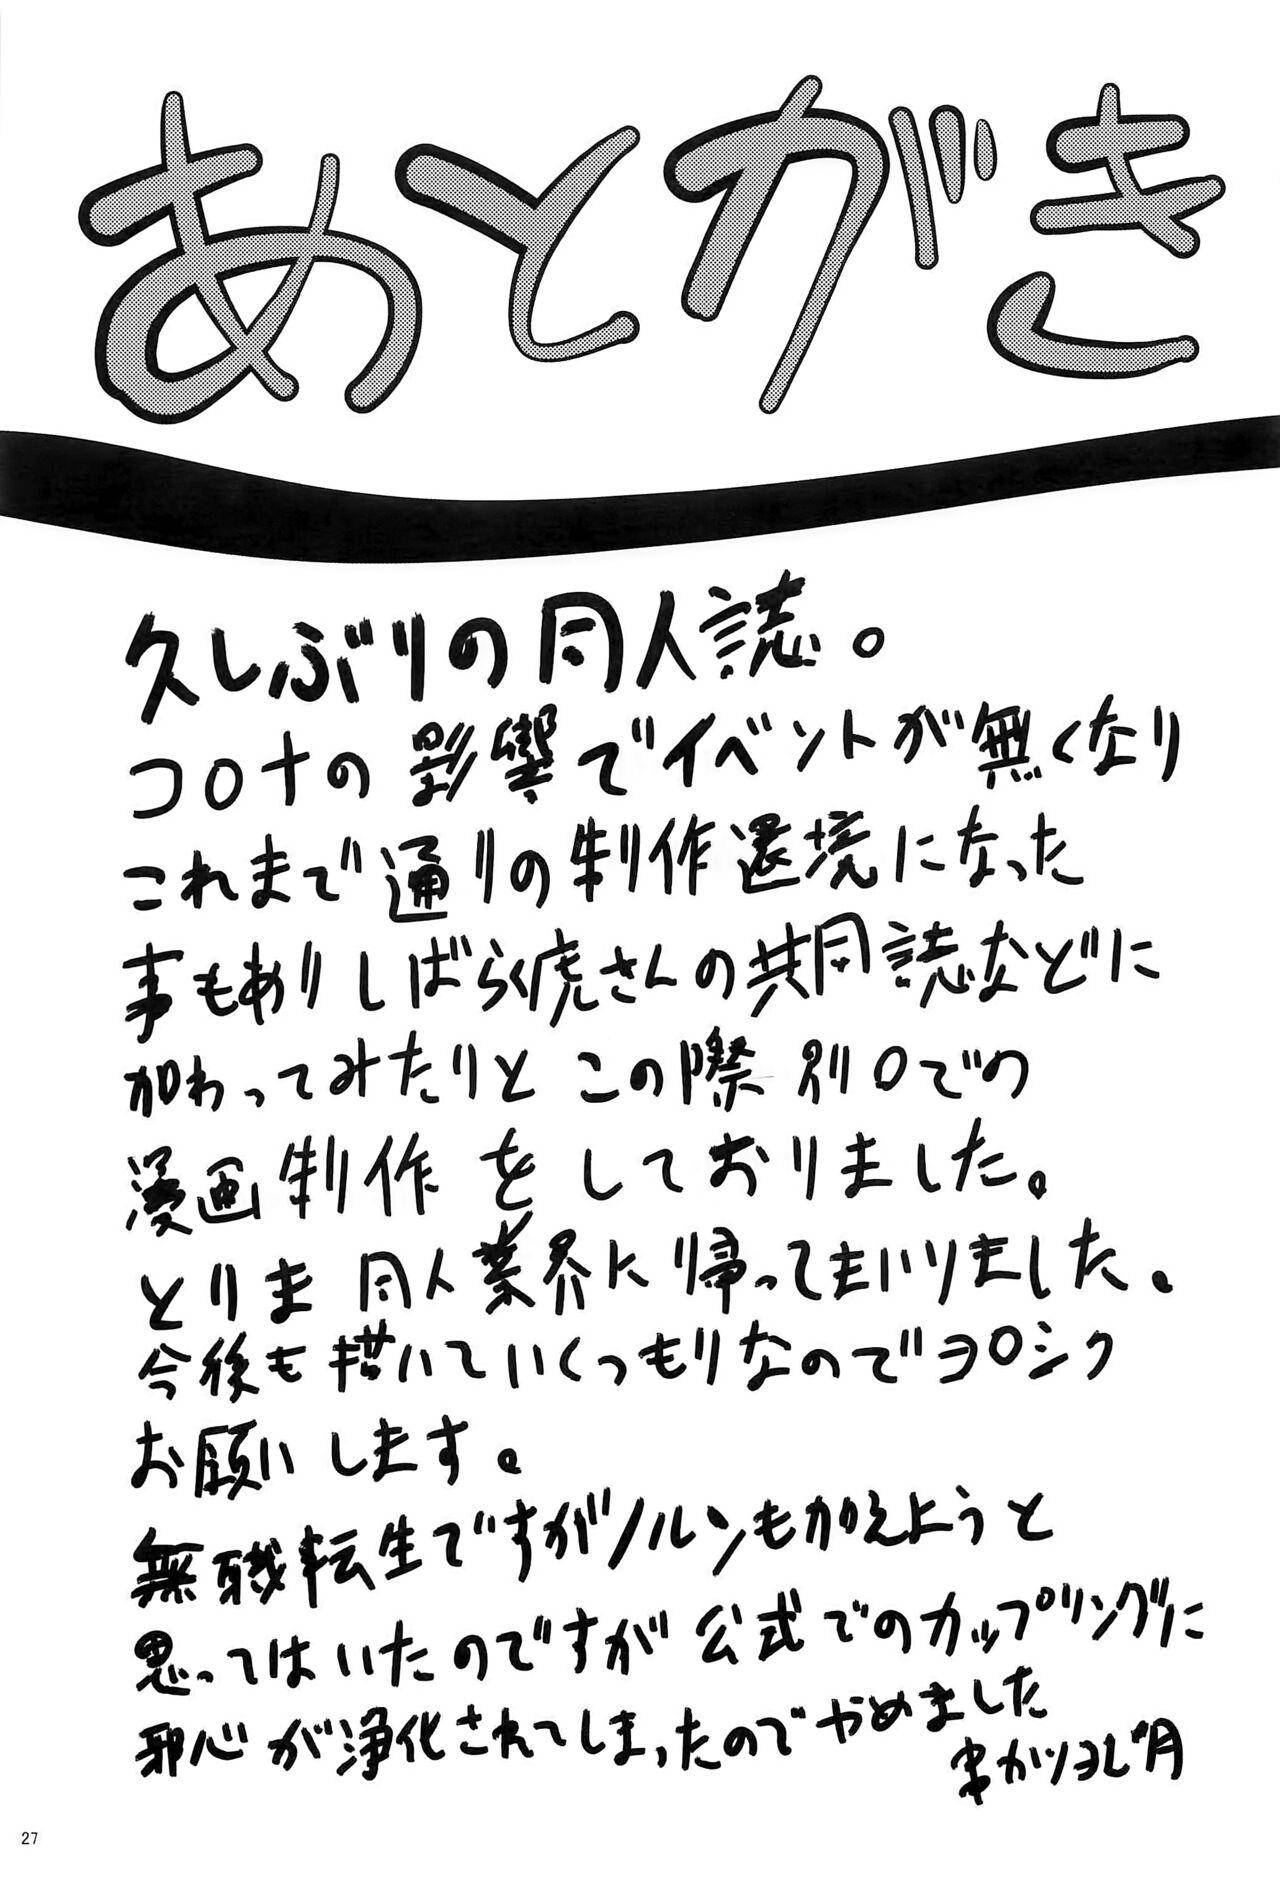 あとがき
久しぶりの同人誌。
コロナの影響でイベントが無くなり
これまで通りの制作還境になった
事もありしばらく虎さんの共同誌などに
加わってみたりと この際 別口での
漫画制作 をしておりました。
とりま 同人業界に帰ってまいりました。
今後も描いていくつもりなのでヨロシク
お願いします。
無職転生ですがノルンもかえようと
思ってはいたのですが 公式でのカップリングに
邪心が浄化されてしまったのでやめました
串かつヨじ月
27